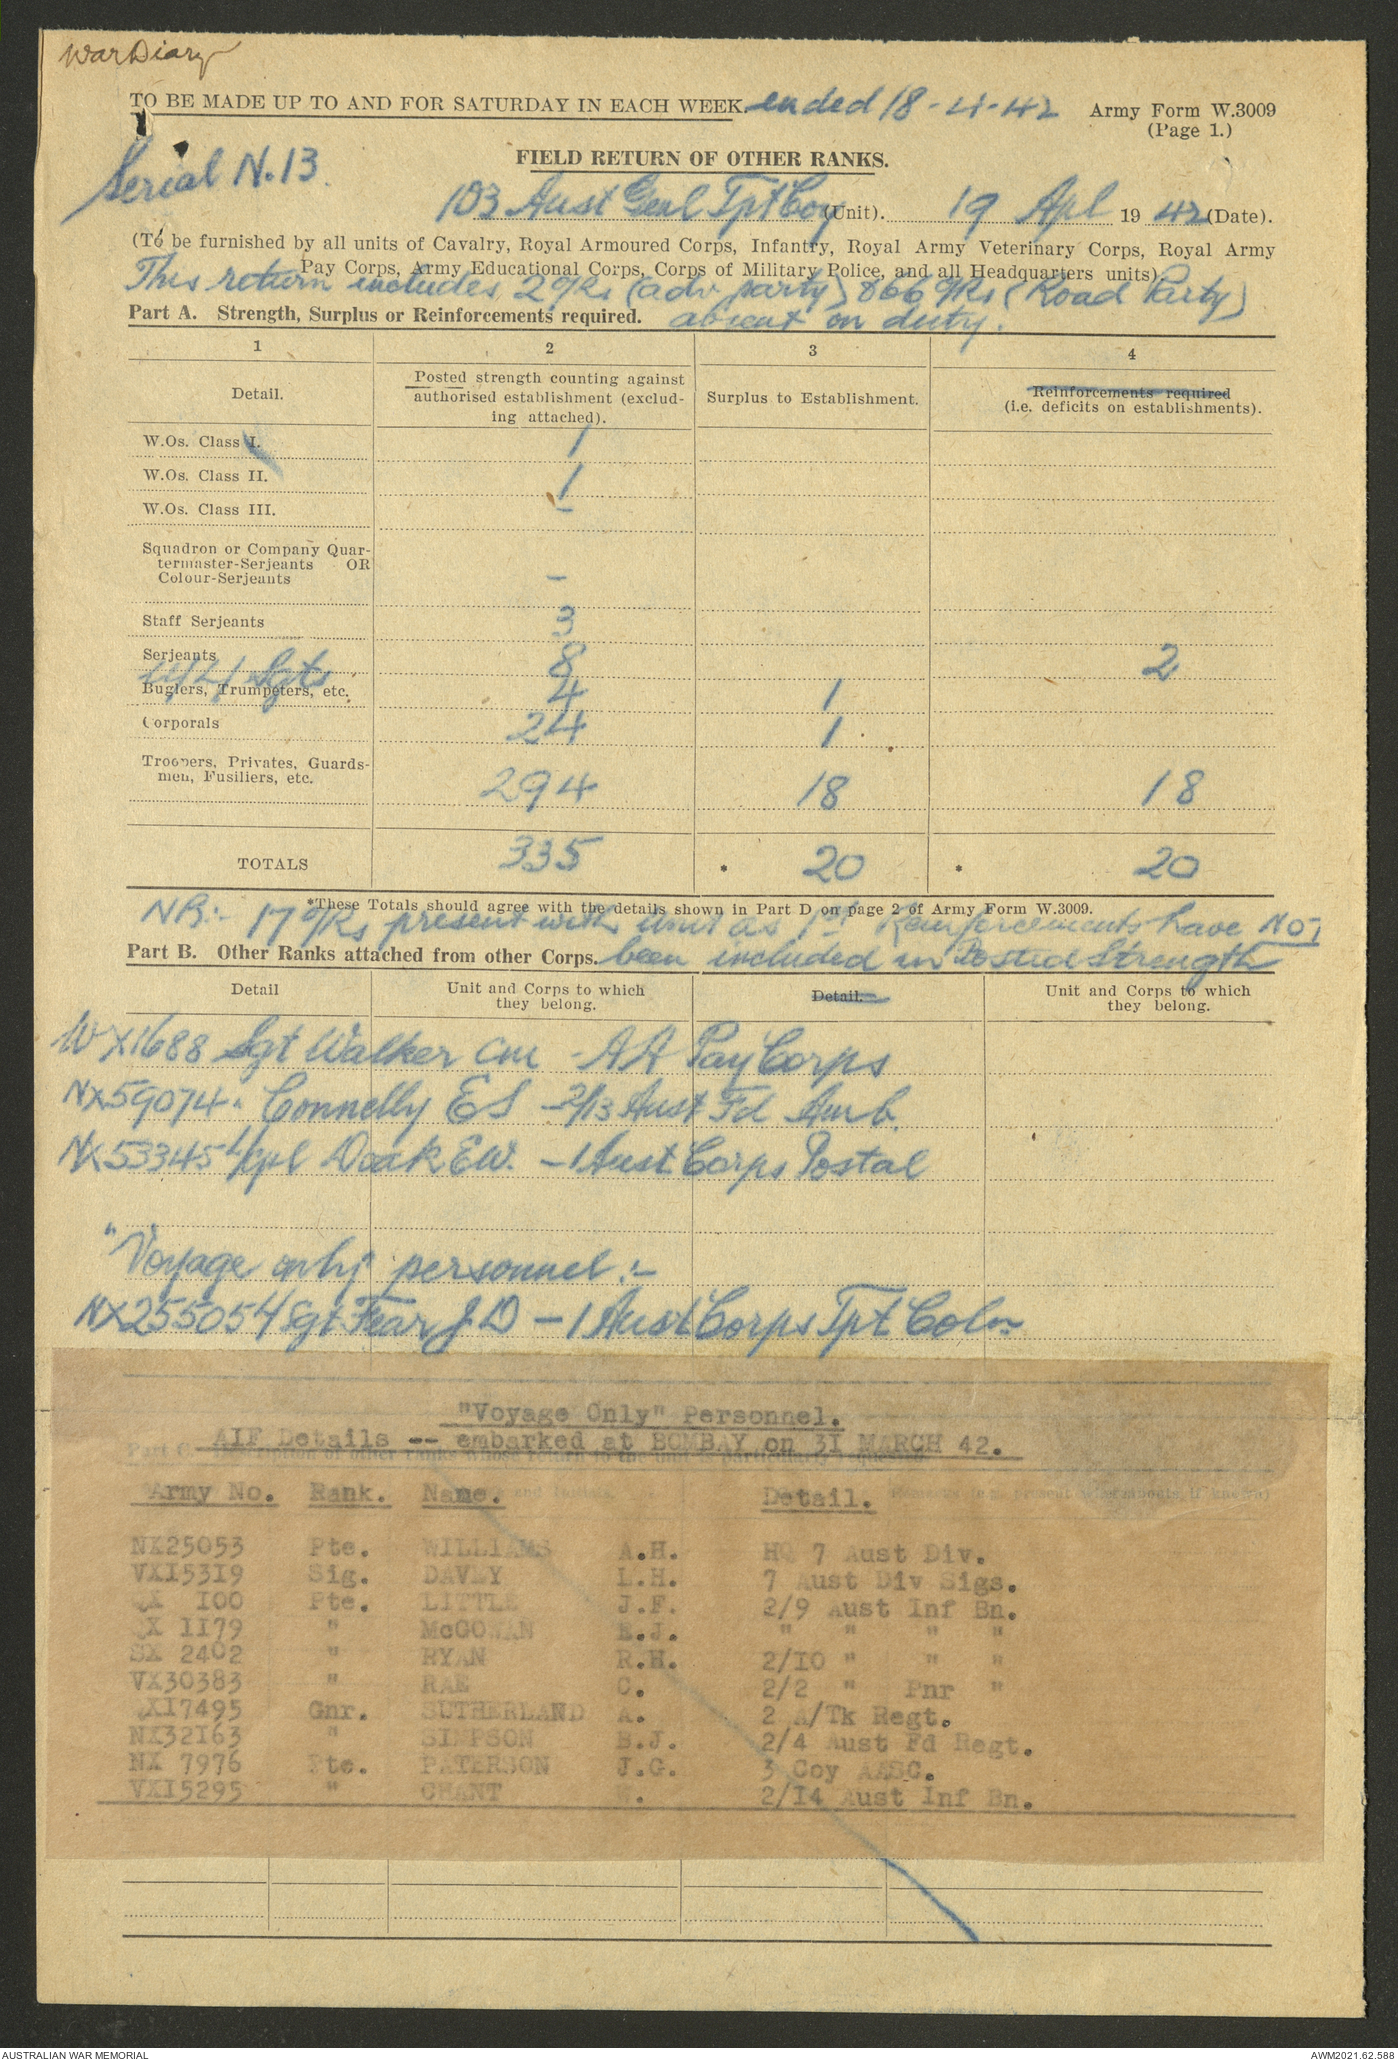 War Diary
TO BE MADE UP TO AND FOR SATURDAY IN EACH WEEK. ended 18-4-42
Army Form W.3009
(Page 1.)
Serial N. 13.
FIELD RETURN OF OTHER RANKS.
103 Aust Genl Tpt Coy (Unit). 19 Apl 19 42 (Date).
(To be furnished by all units of Cavalry, Royal Armoured Corps, Infantry, Royal Army Veterinary Corps, Royal Army
Pay Corps, Army Educational Corps, Corps of Military Police, and all Headquarters units)
This return includes 2 O/Rs (adv party) & 66 O/Rs (Road Party)
absent on duty.
Part A. Strength, Surplus or Reinforcements required.
1 2 3 4
Detail. Posted strength counting against authorised establishment (excluding attached). Surplus to Establishment. Reinforcements required (i.e. deficits on establishments).
W.Os. Class I. 1
W.Os. Class II. 1
W.Os. Class III. –
Squadron or Company Quar-
termaster-Serjeants OR
Colour-Serjeants –
Staff Serjeants 3
Serjeants 8 2
Sgts
Buglers, Trumpeters, etc. 4 1
Corporals 24 1
Troopers, Privates, Guards-
men, Fusiliers, etc. 294 18 18
TOTALS 335 * 20 * 20
*These Totals should agree with the details shown in Part D on page 2 of Army Form W.3009.
NB:- 17 O/Rs present with unit as 1st Reinforcements have NOT
been included in Posted Strength
Part B. Other Ranks attached from other Corps.
Detail Unit and Corps to which they belong. Detail. Unit and Corps to which they belong.
WX1688 Sgt Walker CM - AA Pay Corps
NX59074 " Connelly ES - 2/13 Aust Fd Amb.
NX53345 L/Cpl Doak EW. - 1 Aust Corps Postal
"Voyage only" personnel:-
NX255054 Sgt Fear J D - 1 Aust Corps Tpt Coln
"Voyage Only" Personnel.
AIF Details -- embarked at BOMBAY on 31 MARCH 42.
Army No. Rank. Name. Detail.
NX25053 Pte. WILLIAMS A.H. HQ 7 Aust Div.
VX15319 Sig. DAVEY L.H. 7 Aust Div Sigs.
QX 100 Pte. LITTLE J.F. 2/9 Aust Inf Bn.
QX 1179 " McGOWAN E.J. " " " "
SX 2402 " RYAN R.H. 2/10 " " "
VX30383 " RAE C. 2/2 " Pnr "
X17495 Gnr. SUTHERLAND A. 2 A/Tk Regt.
NX32163 " SIMPSON B.J. 2/4 Aust Fd Regt.
NX 7976 Pte. PATERSON J.G. 3 Coy AASC.
VX15295 " CHANT W. 2/14 Aust Inf Bn.
AUSTRALIAN WAR MEMORIAL
AWM2021.62.588